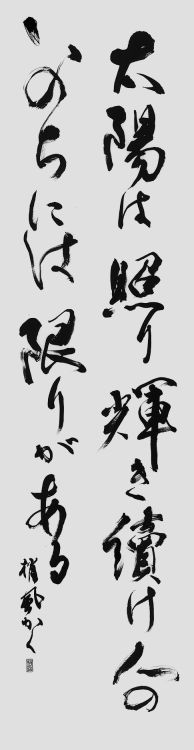 太陽は照り輝き続け人の
いのちには限りがある
梢風かく